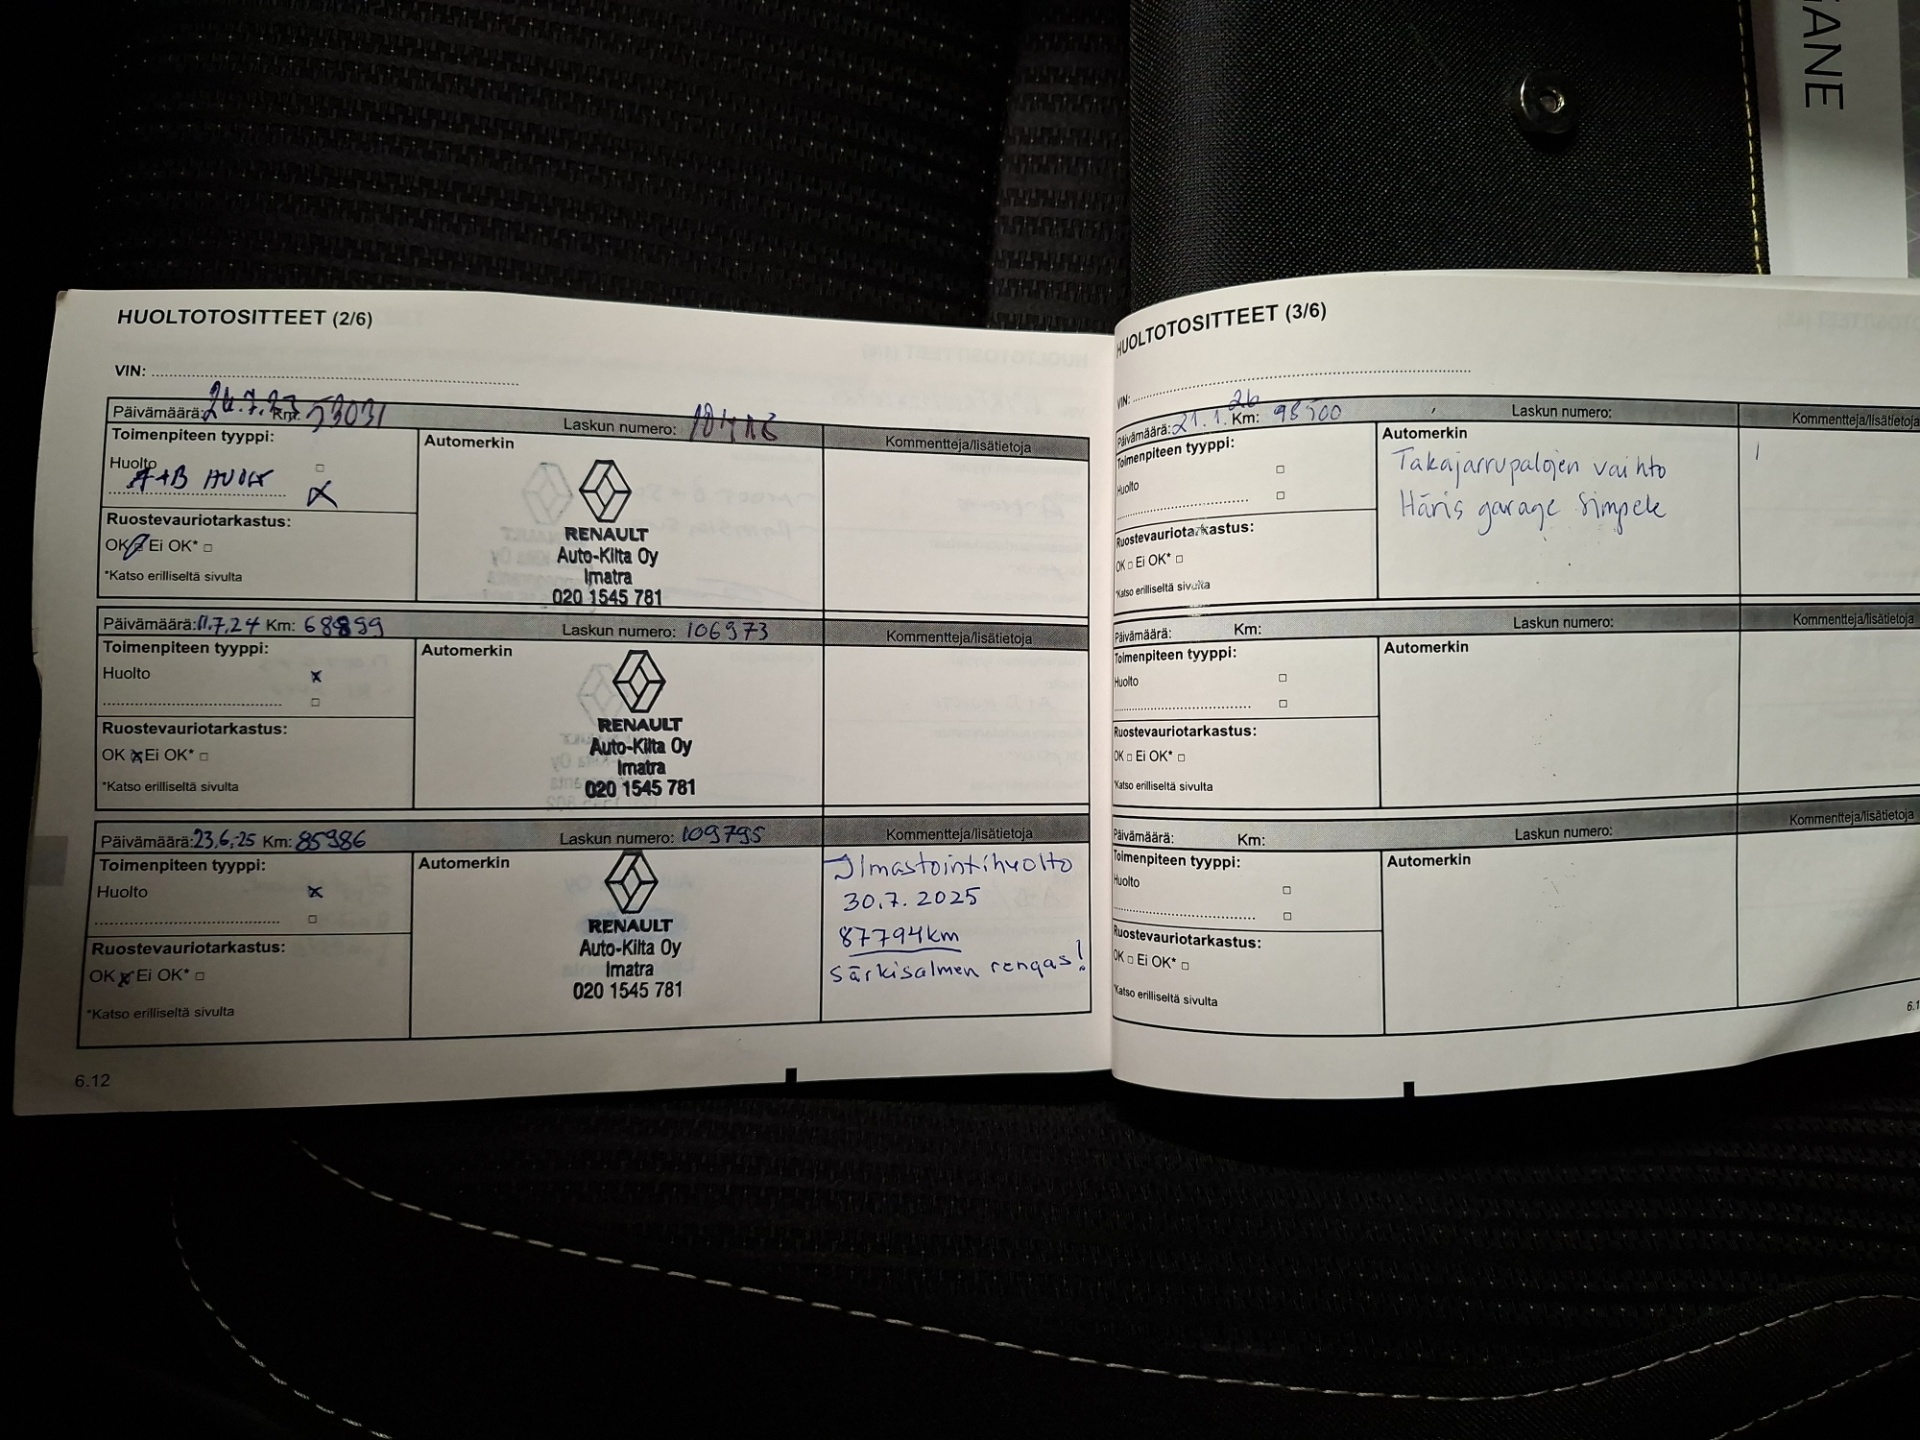 GANE
HUOLTOTOSITTEET (2/6)
VIN:
Päivämäärä: 26.7.23 Km: 53031 Laskun numero:
Toimenpiteen tyyppi:
Automerkin
Kommentteja/lisätietoja
Huolto
A+B HUOLTO
RENAULT
Auto-Kilta Oy
Imatra
020 1545 781
Ruostevauriotarkastus:
OK Ei OK*
*Katso erilliseltä sivulta
Päivämäärä: 11.7.24 Km: 68899 Laskun numero: 106973
Toimenpiteen tyyppi:
Automerkin
Kommentteja/lisätietoja
Huolto
RENAULT
Auto-Kilta Oy
Imatra
020 1545 781
Ruostevauriotarkastus:
OK Ei OK*
*Katso erilliseltä sivulta
Päivämäärä: 23,6,25 Km: 85986 Laskun numero: 109795
Toimenpiteen tyyppi:
Automerkin
Kommentteja/lisätietoja
Huolto
RENAULT
Auto-Kilta Oy
Imatra
020 1545 781
Ilmastointihuolto
30.7.2025
87794km
Särkisalmen rengas!
Ruostevauriotarkastus:
OK Ei OK*
*Katso erilliseltä sivulta
6.12
HUOLTOTOSITTEET (3/6)
VIN:
Päivämäärä: 21.1.26 Km: 98500 Laskun numero:
Toimenpiteen tyyppi:
Automerkin
Kommentteja/lisätietoja
Huolto
Takajarrupalojen vaihto
Häris garage Simpele
Ruostevauriotarkastus:
OK Ei OK*
*Katso erilliseltä sivulta
Päivämäärä: Km: Laskun numero:
Toimenpiteen tyyppi:
Automerkin
Kommentteja/lisätietoja
Huolto
Ruostevauriotarkastus:
OK Ei OK*
*Katso erilliseltä sivulta
Päivämäärä: Km: Laskun numero:
Toimenpiteen tyyppi:
Automerkin
Kommentteja/lisätietoja
Huolto
Ruostevauriotarkastus:
OK Ei OK*
*Katso erilliseltä sivulta
6.1